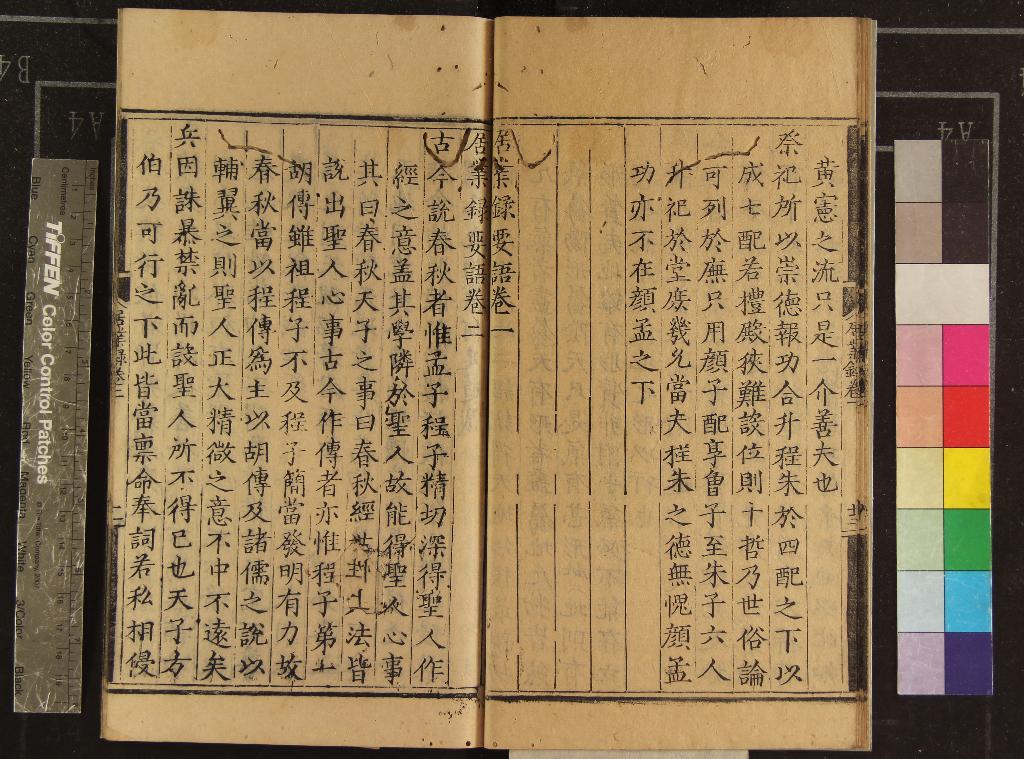 黃憲之流只是一个善夫也
祭祀所以崇德報功合升程朱於四配之下以
成七配若禮殿狹難設位則十哲乃世俗論
可列於廡只用顏子配享曾子至朱子六人
升祀於堂庶幾允當夫程朱之德無愧顏孟
功亦不在顏孟之下
居業錄要語卷一
居業錄要語卷二
古今說春秋者惟孟子程子精切深得聖人作
經之意盖其學隣於聖人故能得聖人心事
其曰春秋天子之事曰春秋經世之大法皆
說出聖人心事古今作傳者亦惟程子第一
胡傳雖祖程子不及程子簡當發明有力故
春秋當以程傳爲主以胡傳及諸儒之說以
輔翼之則聖人正大精微之意不中不遠矣
兵因誅暴禁亂而設聖人所不得已也天子方
伯乃可行之下此皆當禀命奉詞若私相侵
居業錄卷二
TIFFEN Color Control Patches
Centimetres
Inches
Blue
Cyan
Green
Yellow
Red
Magenta
White
3/Color
Black
A4
A4
B4